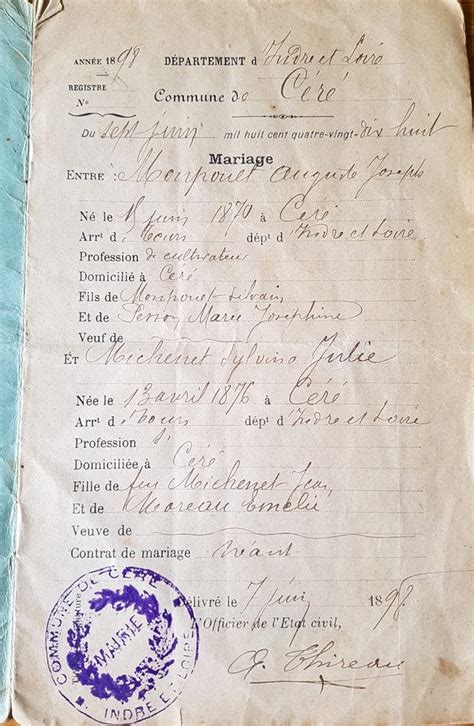 ANNÉE 1898 DÉPARTEMENT d Indre et Loire
REGISTRE
No
Commune de Céré
Du sept juin mil huit cent quatre-vingt-dix huit
Mariage
ENTRE : Monpouet Auguste Joseph
Né le juin 1870 à Céré
Arrt d Tours dépt d'Indre et Loire
Profession de cultivateur
Domicilié à Céré
Fils de Monpouet Silvain
Et de Marie Josephine
Veuf de
ET Michenet Sylvina Julie
Née le 13 avril 1876 à Céré
Arrt d Tours dépt d'Indre et Loire
Profession
Domiciliée à Céré
Fille de feu Michenet Jean
Et de Moreau Emélie
Veuve de
Contrat de mariage Néant
Délivré le 7 juin 1898
L'Officier de l'Etat civil,
A. Thireau
COMMUNE DE CÉRÉ
MAIRIE
INDRE ET LOIRE